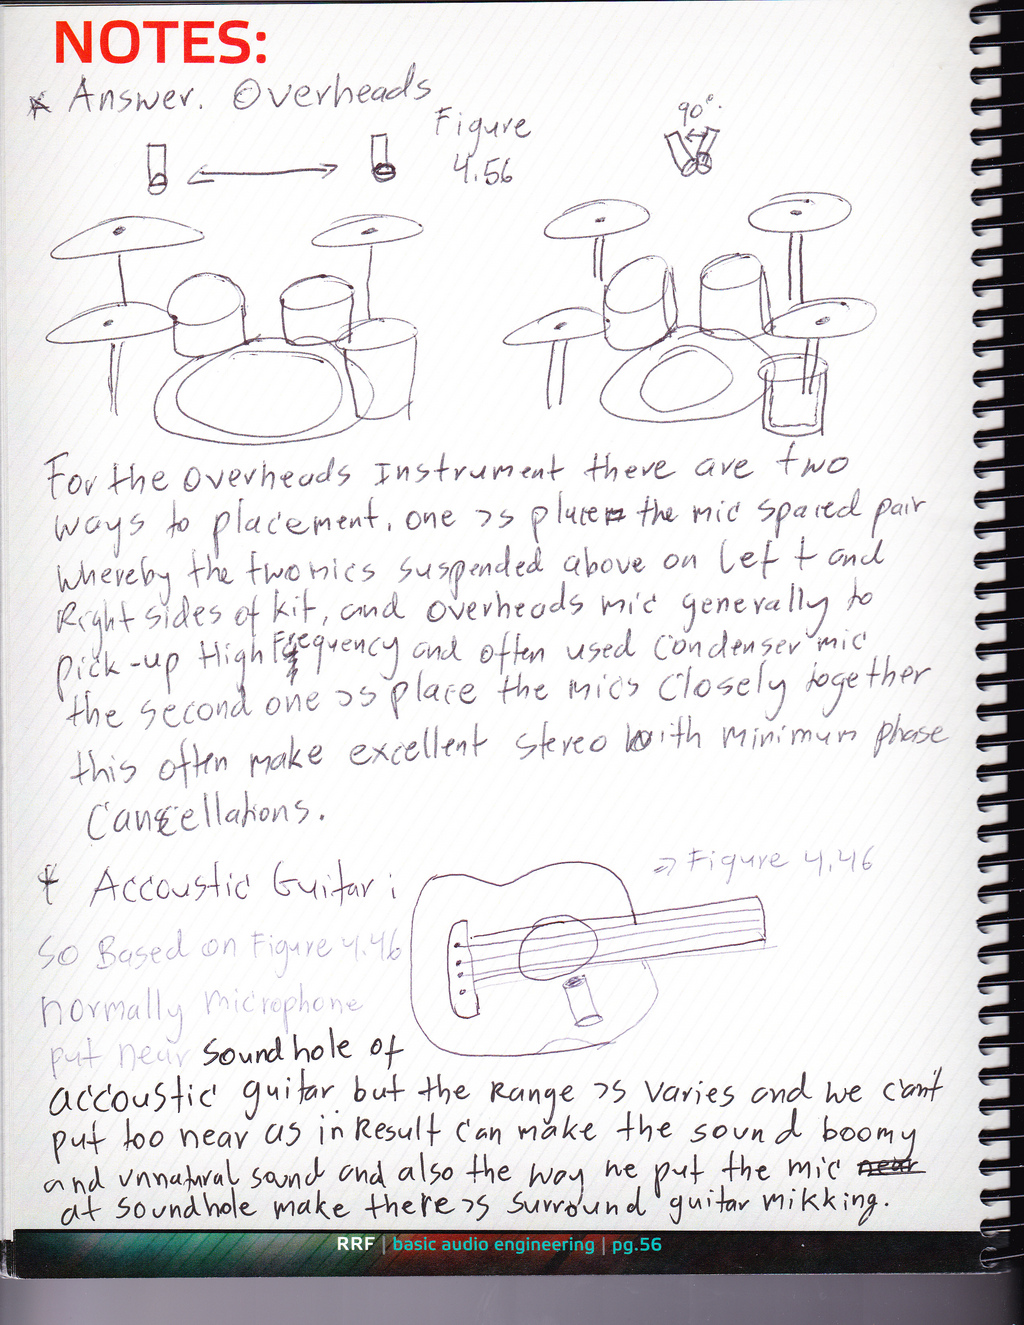 NOTES:
* Answer. Overheads
Figure
4.56
90°.
For the Overheads Instrument there are two
ways to placement, one is place the mic spaced pair
whereby the two mics suspended above on left and
Right sides of kit, and overheads mic generally to
pick-up High Frequency and often used condenser mic
the second one is place the mics closely together
this often make excellent stereo with minimum phase
Cancellations.
* Accoustic Guitar :
=> Figure 4.46
So Based on Figure 4.46
normally microphone
put near soundhole of
accoustic guitar but the Range is varies and we can't
put too near as in Result can make the sound boomy
and unnatural sound and also the way we put the mic near
at soundhole make there is surround guitar mikking.
RRF | basic audio engineering | pg.56